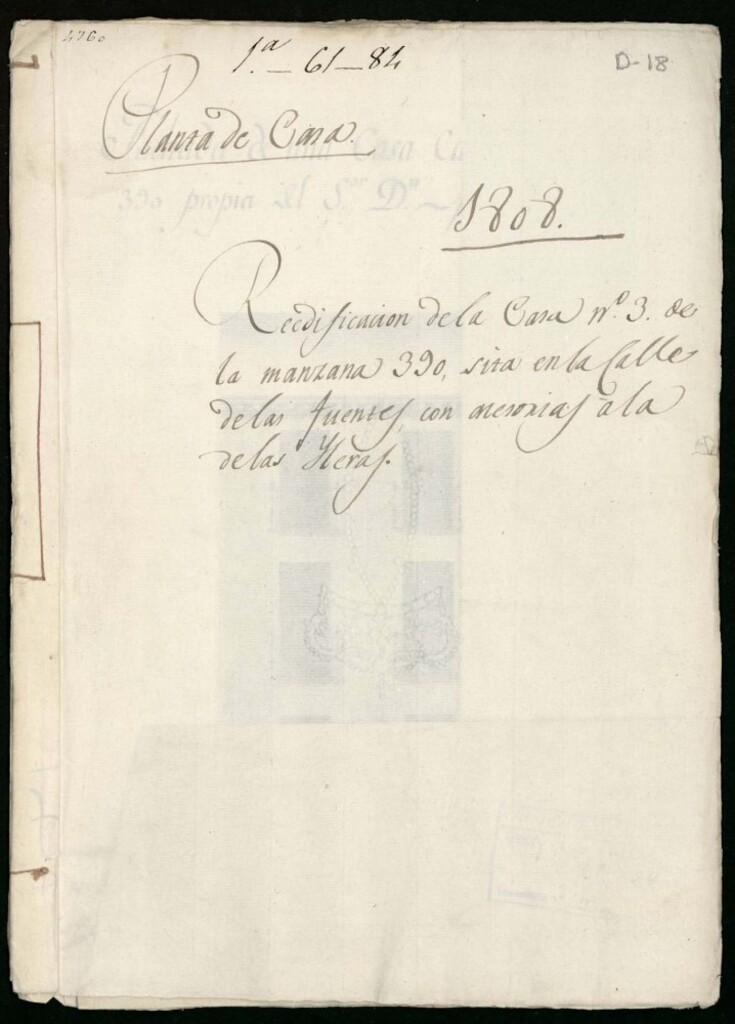 4760
1.ª - 61 - 84
D-18
Planta de Casa.
1808.
Reedificacion de la Casa nº. 3. de
la manzana 390, sita en la Calle
de las Fuentes, con acesorias á la
de las Yleras.
390 propia del S.or D.n